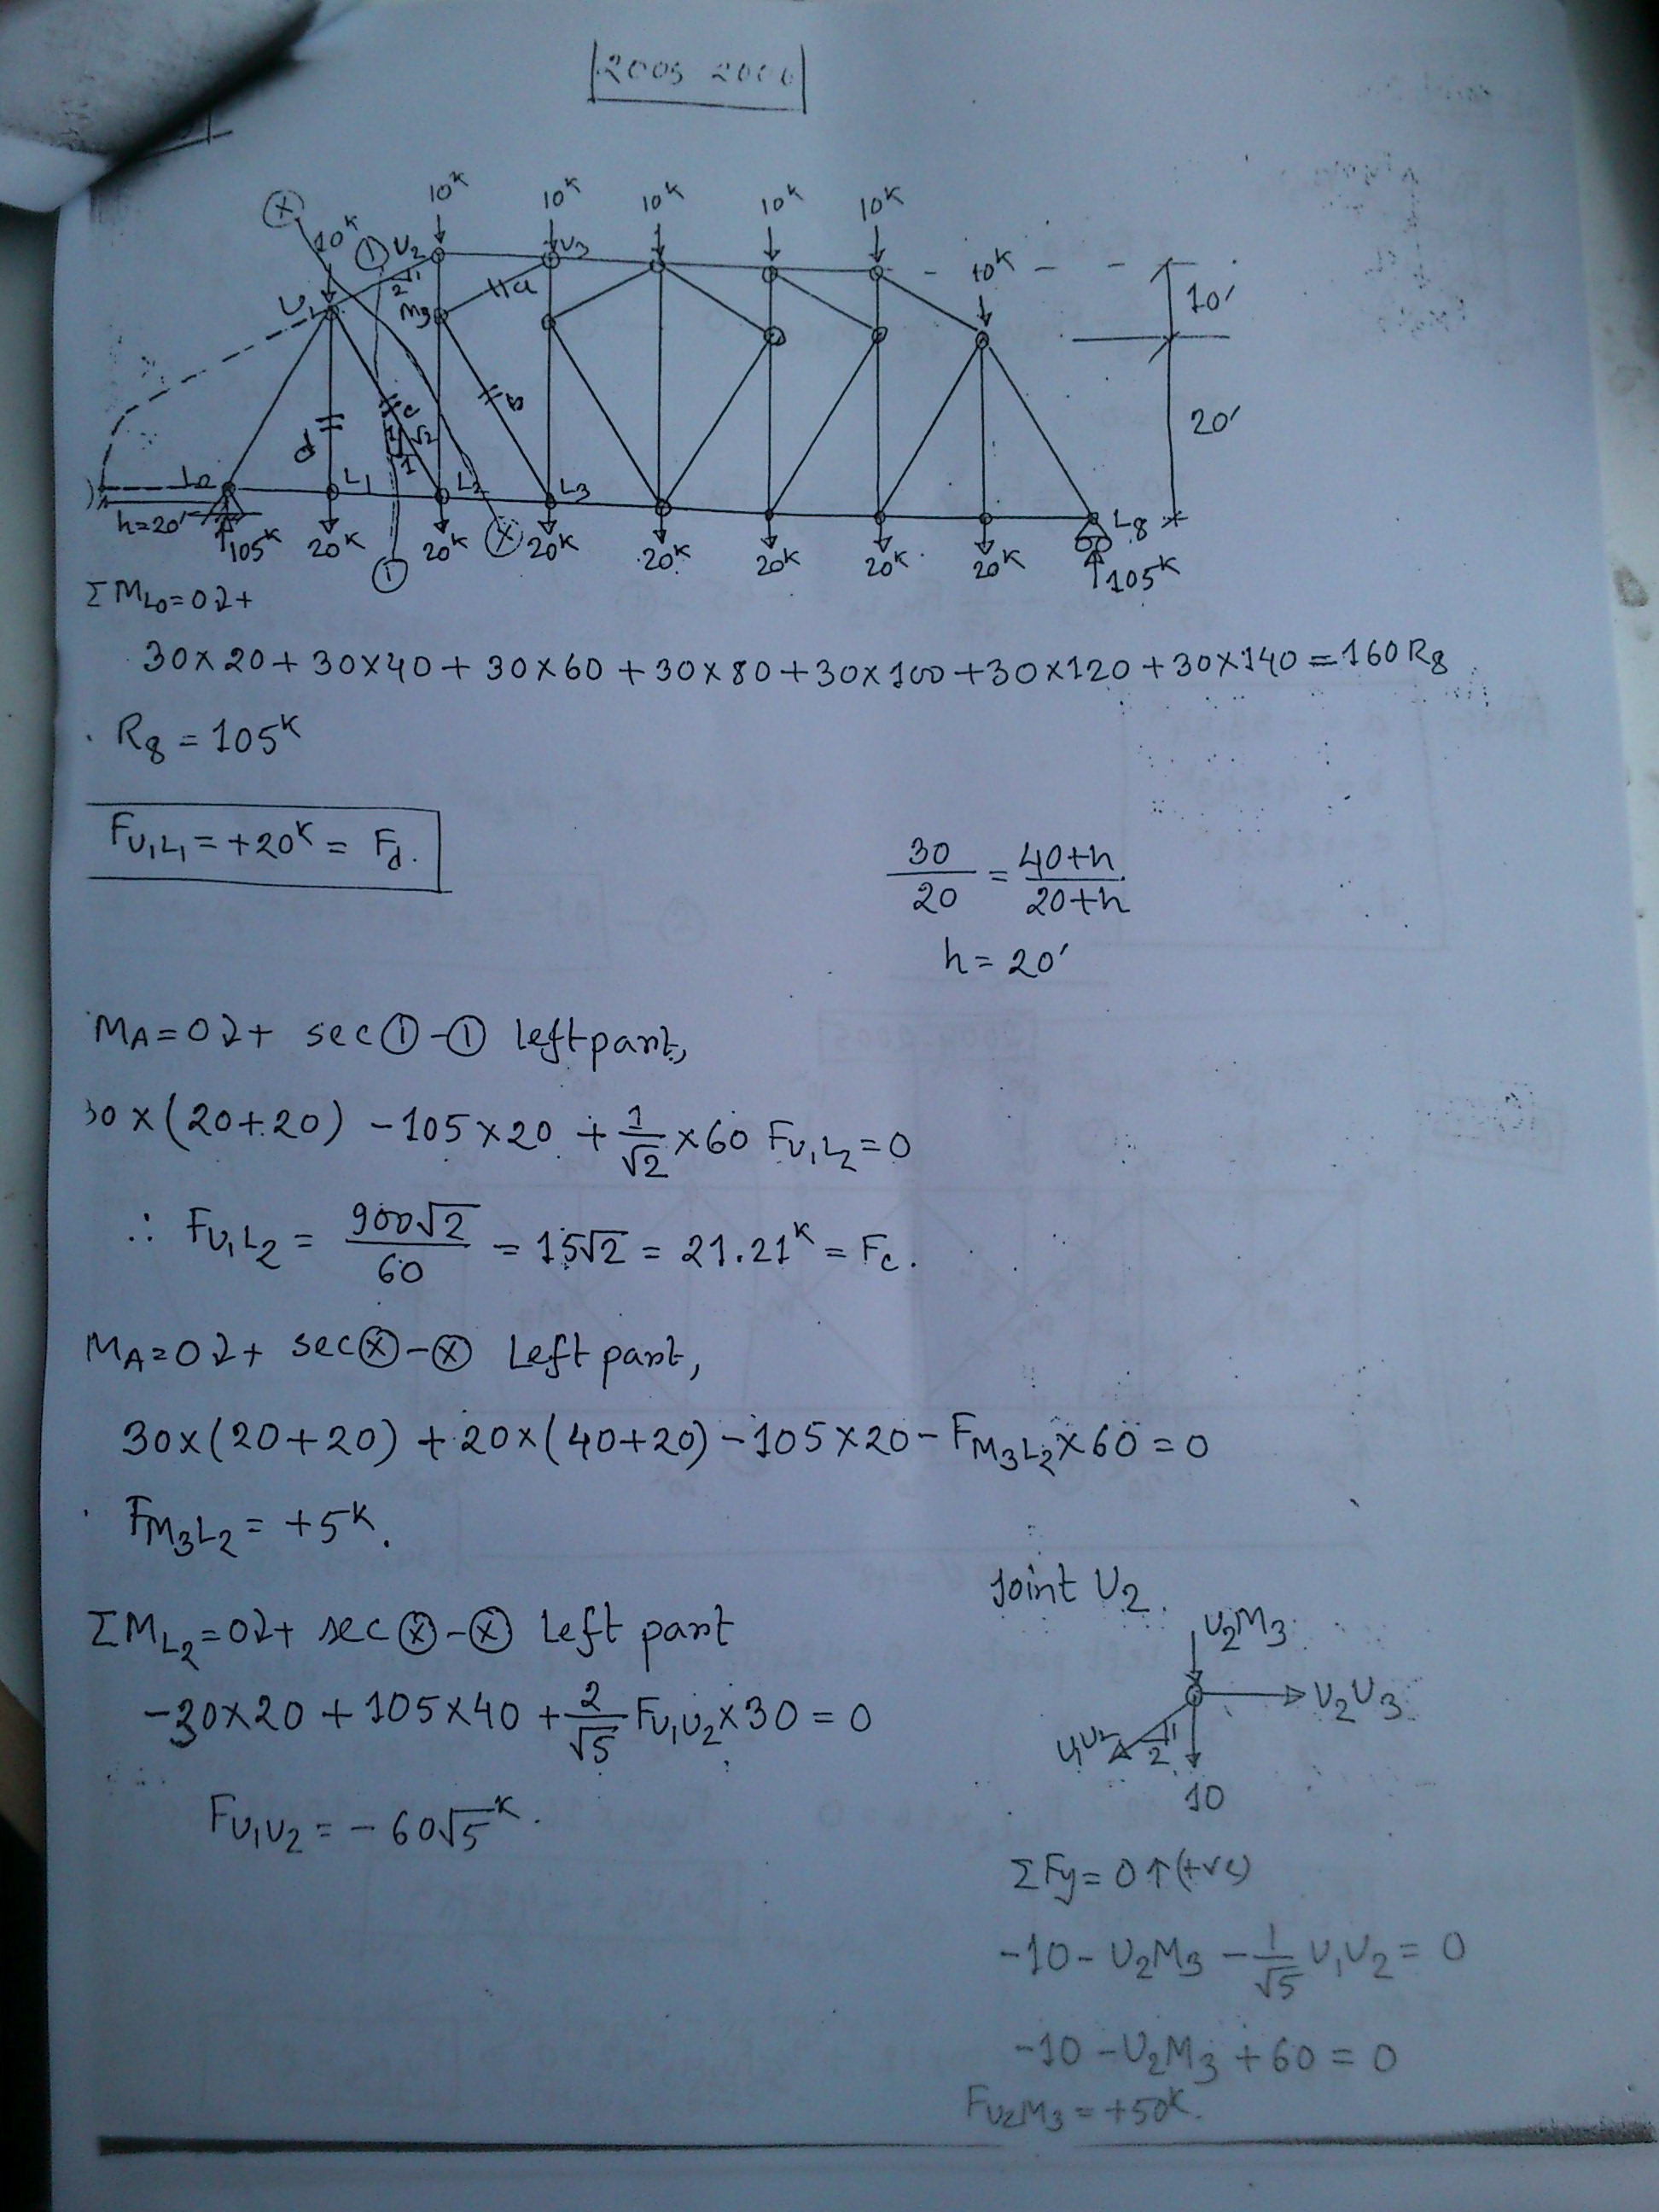 2005 2006
10ᴷ 10ᴷ 10ᴷ 10ᴷ 10ᴷ
X 10ᴷ 1 U₂ U₃ 10ᴷ
2 1 a 10′
U₁ M₃
d c b 20′
1 √2
1
L₀ L₁ L₂ L₃ L₈
h=20′ 105ᴷ 20ᴷ 20ᴷ X 20ᴷ 20ᴷ 20ᴷ 20ᴷ 20ᴷ 105ᴷ
1
ΣM_L₀=0 ↻+
30×20+30×40+30×60+30×80+30×100+30×120+30×140=160R₈
R₈=105ᴷ
F_U₁L₁=+20ᴷ=F_d.
30/20 = (40+h)/(20+h)
h=20′
M_A=0 ↻+ sec ①-① left part,
30×(20+20) -105×20 + 1/√2 ×60 F_U₁L₂=0
∴ F_U₁L₂ = 900√2/60 = 15√2 = 21.21ᴷ = F_c.
M_A=0 ↻+ sec ⓧ-ⓧ Left part,
30×(20+20)+20×(40+20)-105×20-F_M₃L₂×60=0
F_M₃L₂=+5ᴷ.
ΣM_L₂=0 ↻+ sec ⓧ-ⓧ left part
-30×20+105×40+ 2/√5 F_U₁U₂×30=0
F_U₁U₂=-60√5ᴷ.
Joint U₂.
U₂M₃
U₂U₃
U₁U₂ 2 1
10
ΣFy=0↑(+ve)
-10-U₂M₃- 1/√5 U₁U₂=0
-10-U₂M₃+60=0
F_U₂M₃=+50ᴷ.